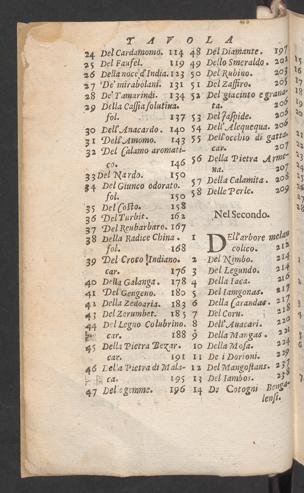 TAVOLA
24 Del Cardamomo. 114
25 Del Faufel. 119
26 Della noce d'India. 123
27 De' mirabolani. 131
28 De' Tamarindi. 134
29 Della Cassia solutina.
fol. 137
30 Dell'Anacardo. 140
31 Dell'Amomo. 143
32 Del Calamo aromati-
co. 146
33 Del Nardo. 150
34 Del Giunco odorato.
fol. 150
35 Del Costo. 158
36 Del Turbit. 162
37 Del Reubarbaro. 167
38 Della Radice China.
fol. 168
39 Del Croco Indiano.
car. 176
40 Della Galanga. 178
41 Del Gengeno. 180
42 Della Zedoaria. 183
43 Del Zerumbet. 185
44 Del Legno Colubrino.
car. 188
45 Della Pietra Bezar.
car. 191
46 Della Pietra di Mala-
ca. 195
47 Dele gemme. 196
48 Del Diamante. 197
49 Dello Smeraldo. 202
50 Del Rubino. 203
51 Del Zaffiro. 205
52 Del giacinto e grana-
ta. 206
53 Del Iaspide. 206
54 Dell'Alequequa. 206
55 Dell'occhio di gatta.
car. 207
56 Della Pietra Arme-
na. 207
57 Della Calamita. 208
58 Delle Perle. 209
Nel Secondo.
1 Dell'arbore melan
colico. 212
2 Del Nimbo. 214
3 Del Legundo. 214
4 Della Iaca. 216
5 Del Iamgonas. 217
6 Della Carandas. 217
7 Del Coru. 218
8 Dell'Auacari. 220
9 Della Mangas. 221
10 Della Mosa. 224
11 De i Dorioni. 229
12 Del Mangostans. 237
13 Del Iambos.
14 De Cotogni Benga-
lensi.